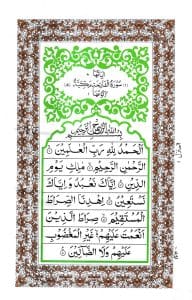 سُوْرَةُ الْفَاتِحَةِ مَكِّيَّةٌ
بِسْمِ اللّٰهِ الرَّحْمٰنِ الرَّحِيْمِ
اَلْحَمْدُ لِلّٰهِ رَبِّ الْعٰلَمِيْنَ
الرَّحْمٰنِ الرَّحِيْمِ مٰلِكِ يَوْمِ
الدِّيْنِ اِيَّاكَ نَعْبُدُ وَاِيَّاكَ
نَسْتَعِيْنُ اِهْدِنَا الصِّرَاطَ
الْمُسْتَقِيْمَ صِرَاطَ الَّذِيْنَ
اَنْعَمْتَ عَلَيْهِمْ غَيْرِ الْمَغْضُوْبِ
عَلَيْهِمْ وَلَا الضَّآلِّيْنَ